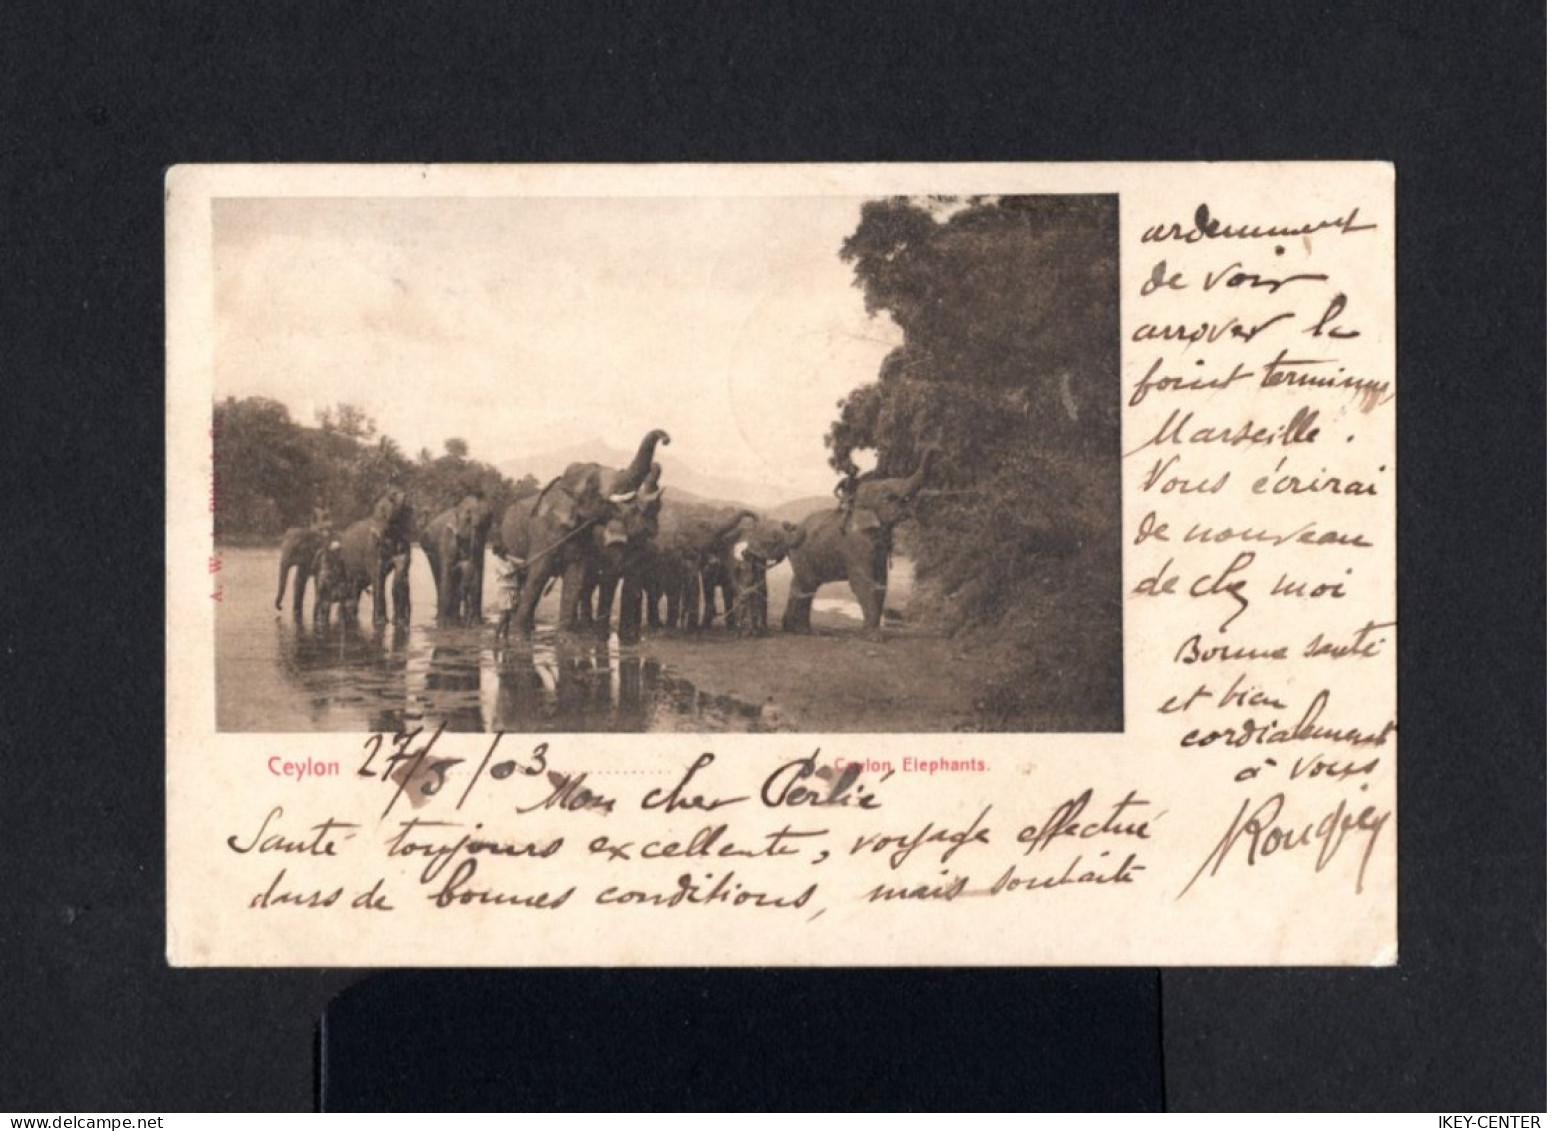 Ceylon 27/5/03
Ceylon Elephants.
Mon cher Perlié
Santé toujours excellente, voyage effectué
dans de bonnes conditions, mais souhaite
ardemment
de voir
arrover le
point terminus,
Marseille.
Vous écrirai
de nouveau
de chez moi
Bonne santé
et bien
cordialement
à vous
Rougier
A. W.
IKEY-CENTER